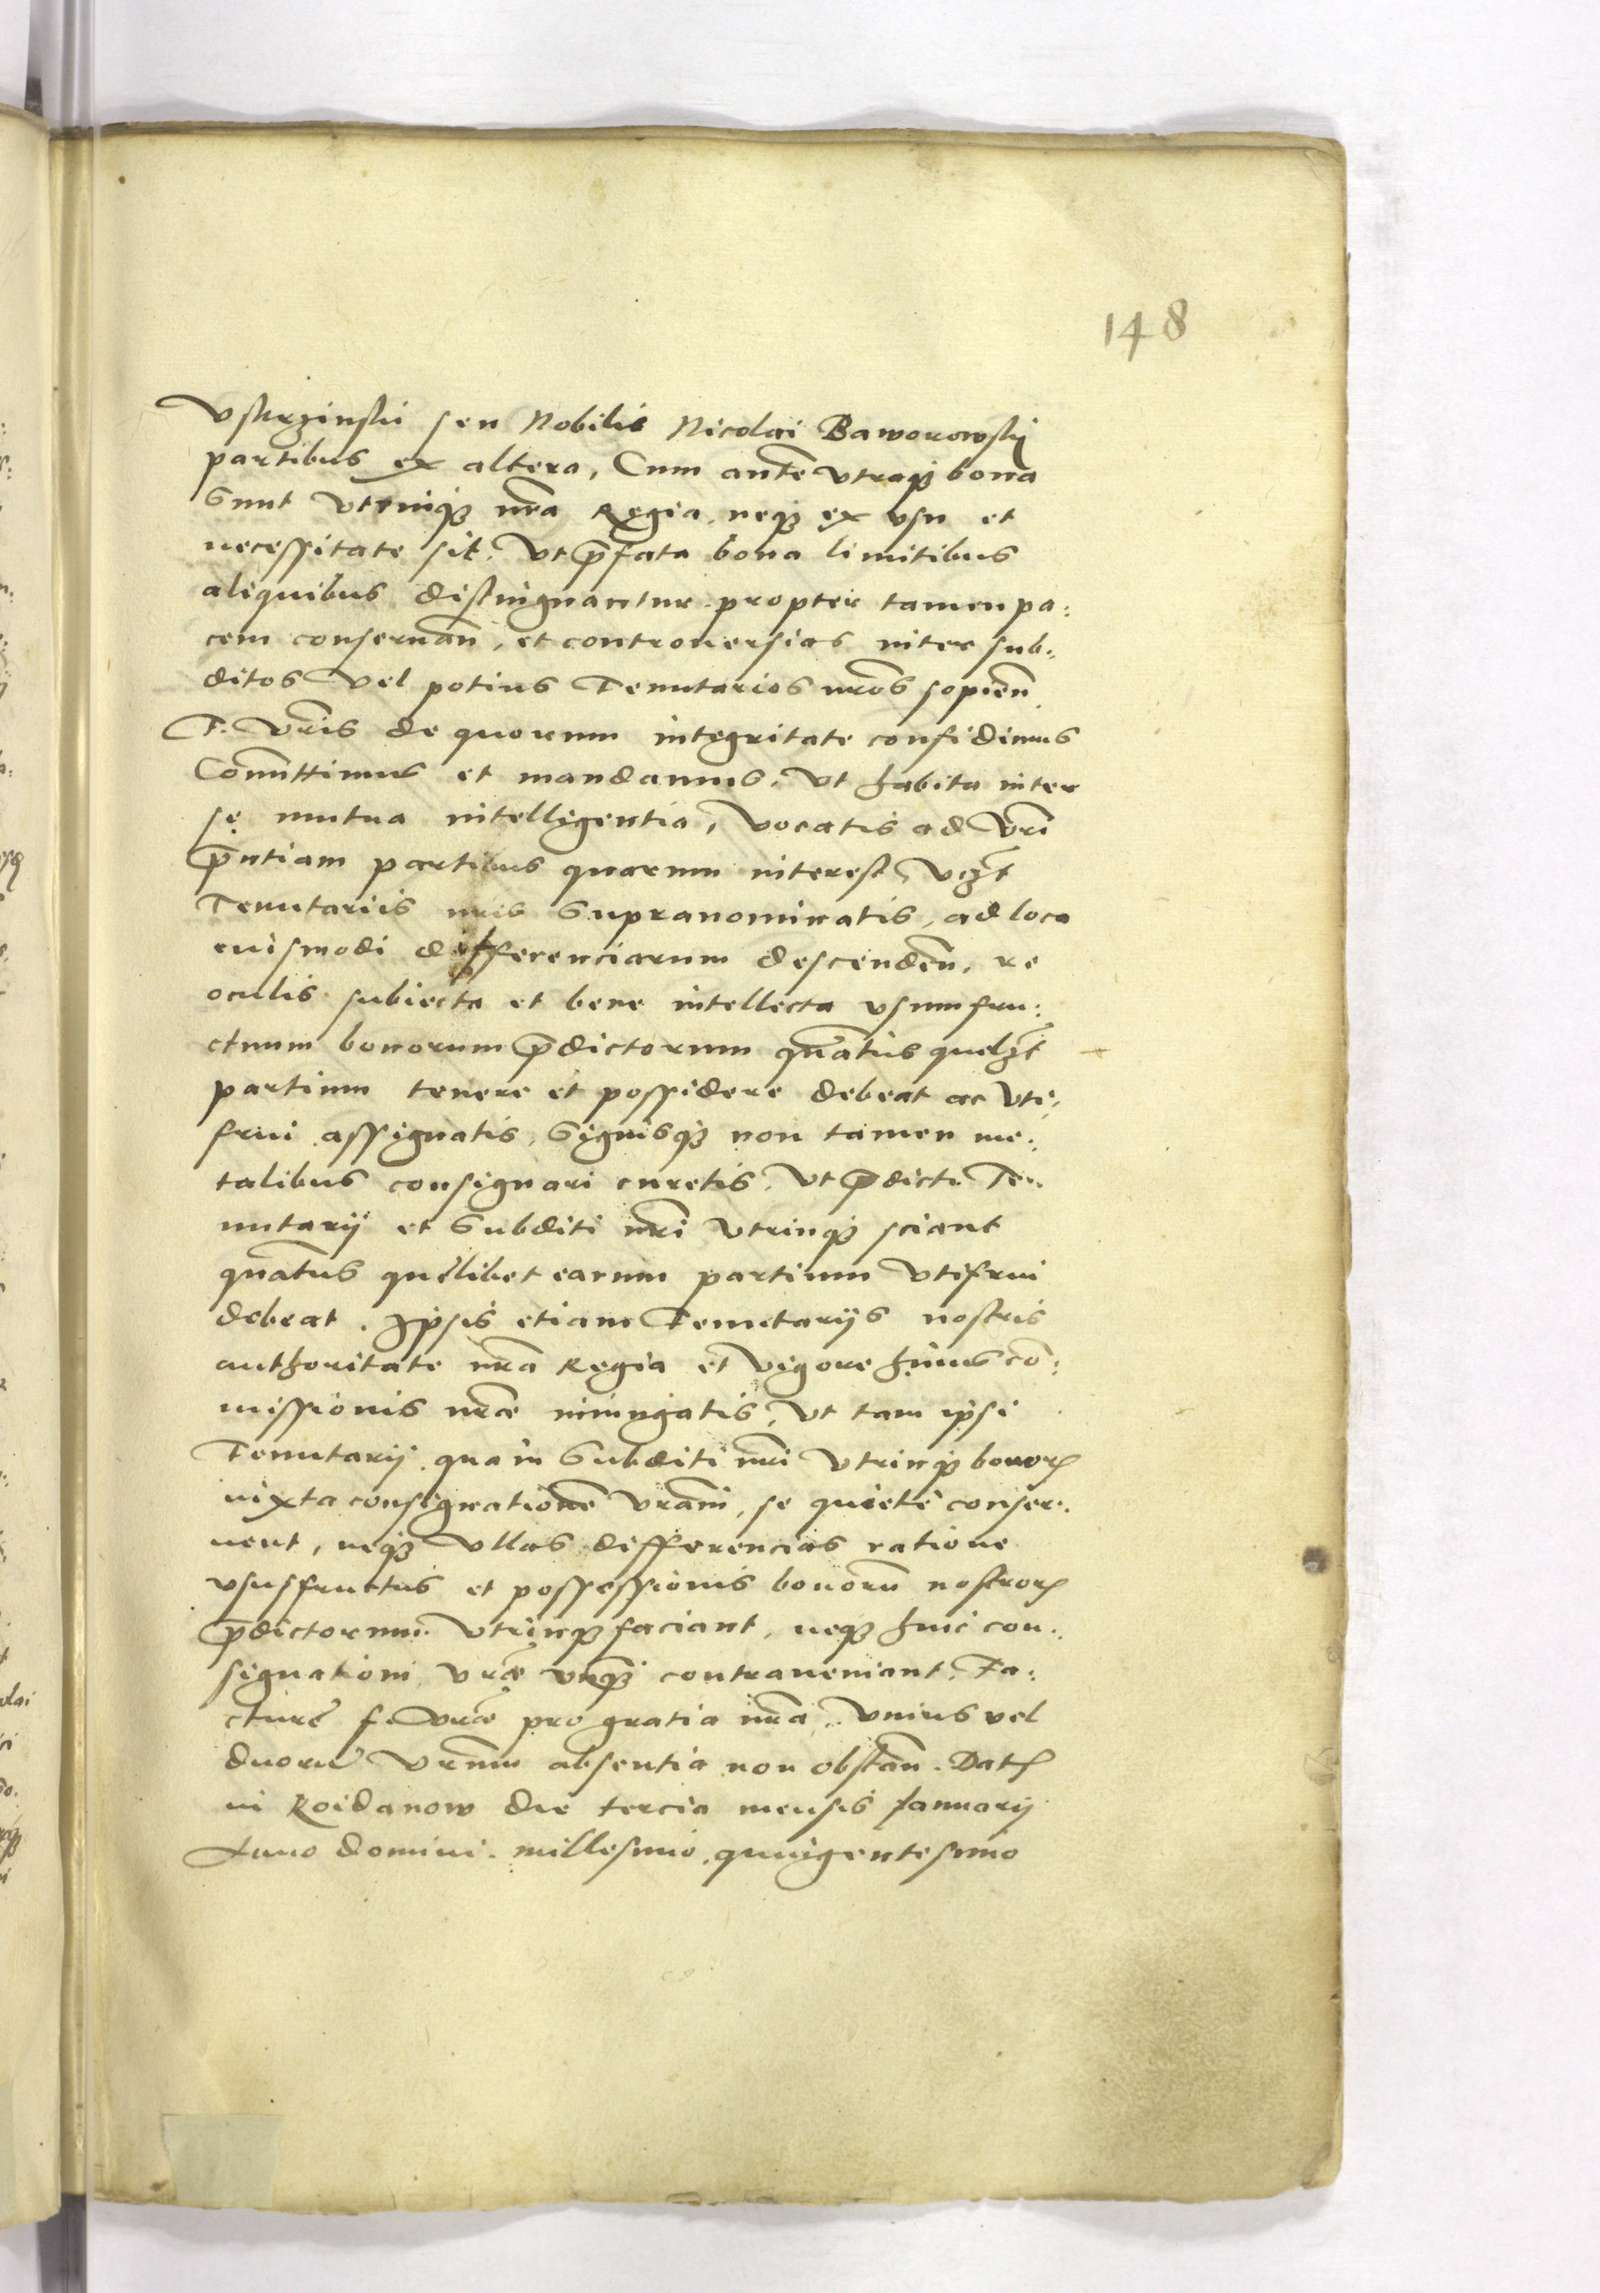 148
Vstrzinskii seu Nobilis Nicolai Baworowskij
partibus ex altera, Cum autē vtraqꝫ bona
Sunt vtrinqꝫ nr̄a Regia, neqꝫ ex vsu et
necessitate sit, vt p̄fata bona limitibus
aliquibus distinguantur, propter tamen pa:
cem conseruan̄, et controuersias inter sub:
ditos vel potius Tenutarios nr̄os sopien̄,
F. Vr̄is de quorum integritate confidimus
Com̄ittimus et mandamus, vt habita inter
se mutua intelligentia, vocatis ad vr̄i
p̄ntiam partibus quarum interest, vꝫt
Tenutariis nr̄is Supranominatis, ad loca
euismodi differenciarum descenden̄, re
oculis subiecta et bene intellecta vsumfru:
ctuum bonorum p̄dictorum qūatūs quelꝫt
partium tenere et possidere debeat ac vti:
frui, assignatis, Signisqꝫ non tamen me:
talibus consignari curetis, vt p̄dicti Te:
nutarij et Subditi nr̄i vtrinqꝫ sciant
quatūs quelibet earum partium vtifrui
debeat. Ipsis etiam Tenutarijs nostris
authoritate nr̄a Regia et vigore huius cō:
missionis nr̄ae iniungatis, vt tam ipsi
Tenutarij quam Subditi nr̄i vtrinqꝫ bonorꝫ
iuxta consignationē vr̄am, se quietè conser:
uent, neqꝫ vllas differencias ratione
vsusfructus et possessionis bonorū nostrorꝫ
p̄dictorum vtrinqꝫ faciant, neqꝫ huic con:
signationi vr̄ae vnq̄ꝫ contraueniant. Fa:
cturē f. vr̄ae pro gratia nr̄a, vnius vel
duorū vr̄um absentia non obstan̄. Datꝫ
in Koidanow die tercia mensis Januarij
Anno domini millesimo, quingentesimo